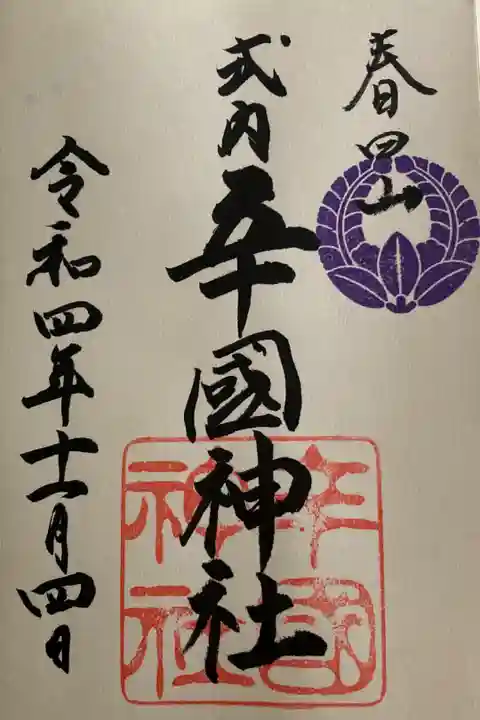 春日山
式内 辛國神社
令和四年十一月四日
辛國神社